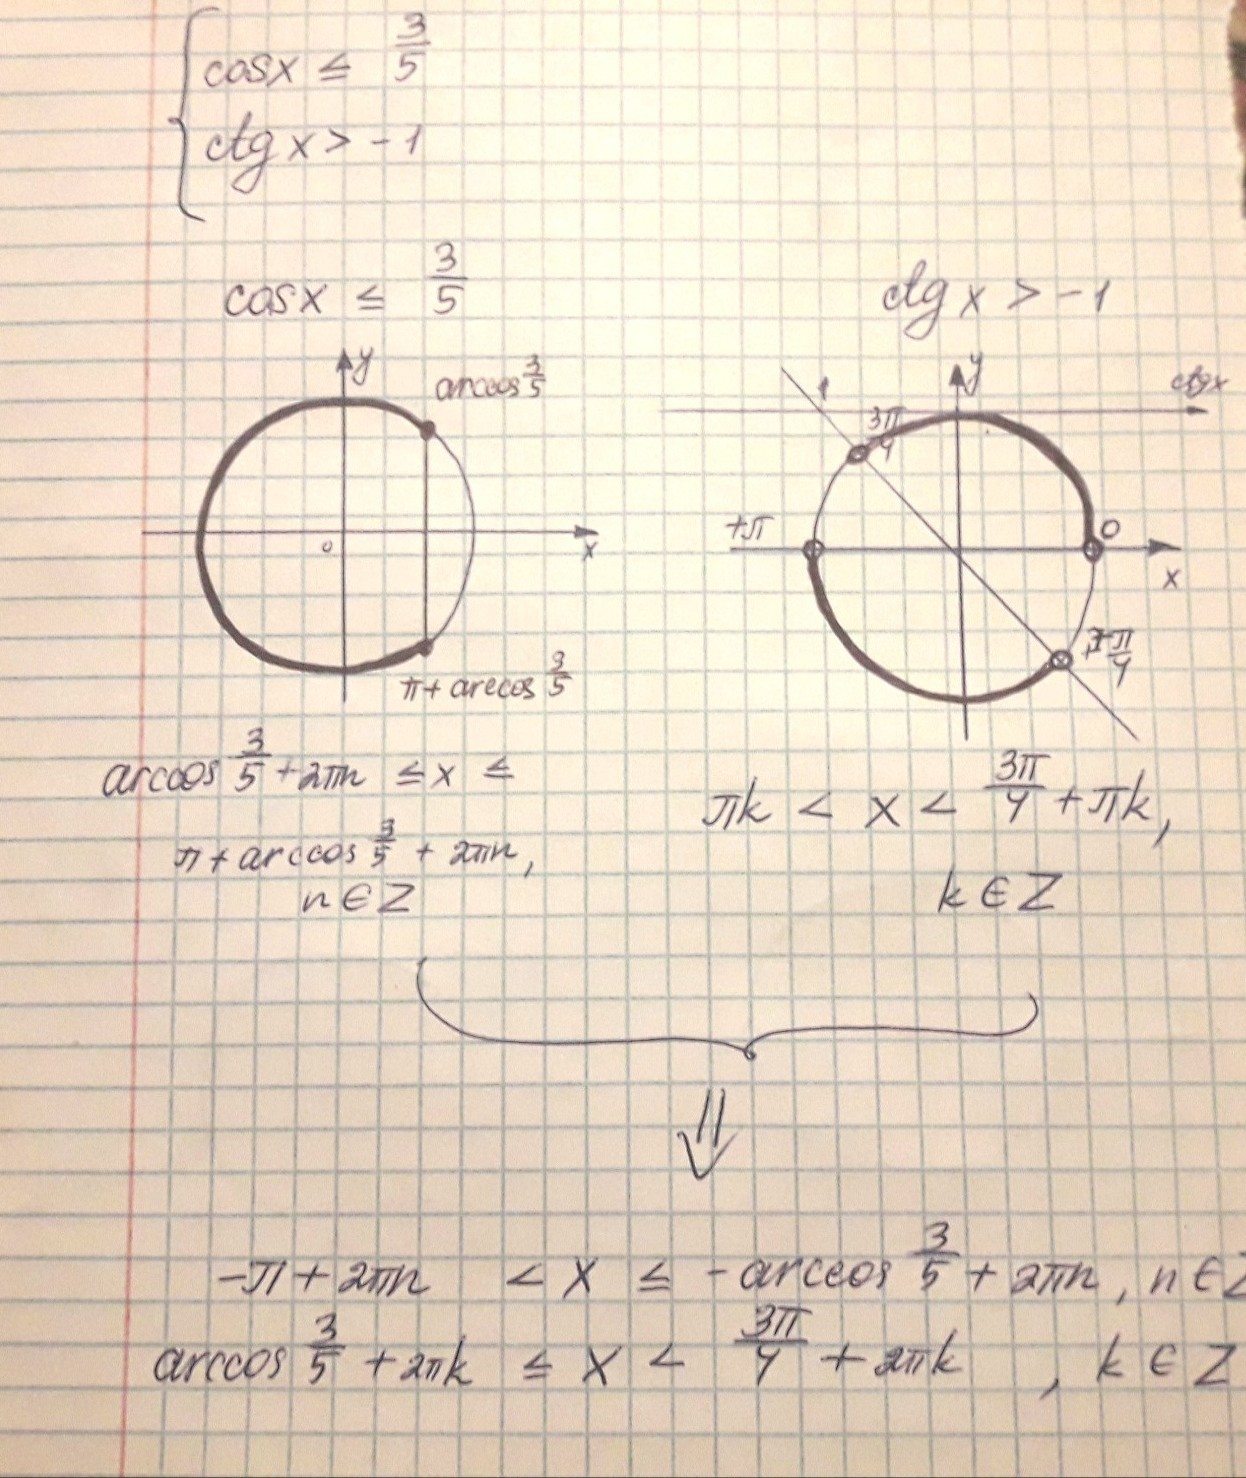 cosx ≤ 3/5
ctg x > -1
cosx ≤ 3/5
ctg x > -1
y
arccos 3/5
0
x
π + arccos 3/5
y
ctgx
1
3π/4
+π
0
x
π/4
arccos 3/5 + 2πn ≤ x ≤
π + arccos 3/5 + 2πn,
n ∈ Z
πk < x < 3π/4 + πk,
k ∈ Z
⇓
-π + 2πn < x ≤ -arccos 3/5 + 2πn, n ∈ Z
arccos 3/5 + 2πk ≤ x < 3π/4 + 2πk, k ∈ Z